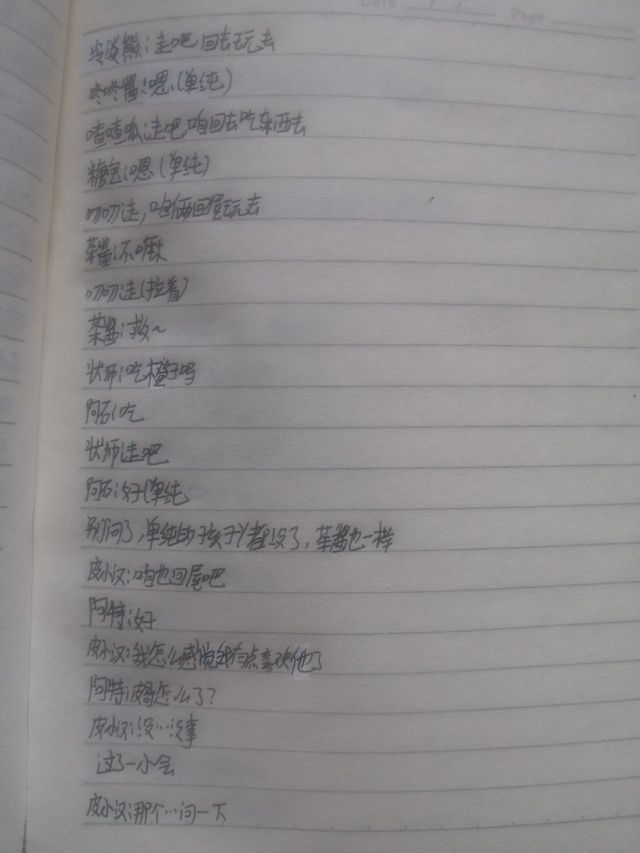 Date Page
冷漠熊:走吧回去玩去
咚咚酱:嗯(单纯)
喳喳呱:走吧咱回去吃东西去
糖包:嗯(单纯)
叨叨:走,咱俩回屋玩去
菜酱:不嘛
叨叨:走(拉着)
菜酱:救~
状师:吃橙子吗
阿石:吃
状师:走吧
阿石:好(单纯
别问了,单纯的孩子丫都没了,菜酱也一样
皮小汉:咱也回屋吧
阿特:好
皮小汉:我怎么感觉我有点喜欢他了
阿特:皮哥怎么了?
皮小汉:没…没事
过了一小会
皮小汉:那个…问一下